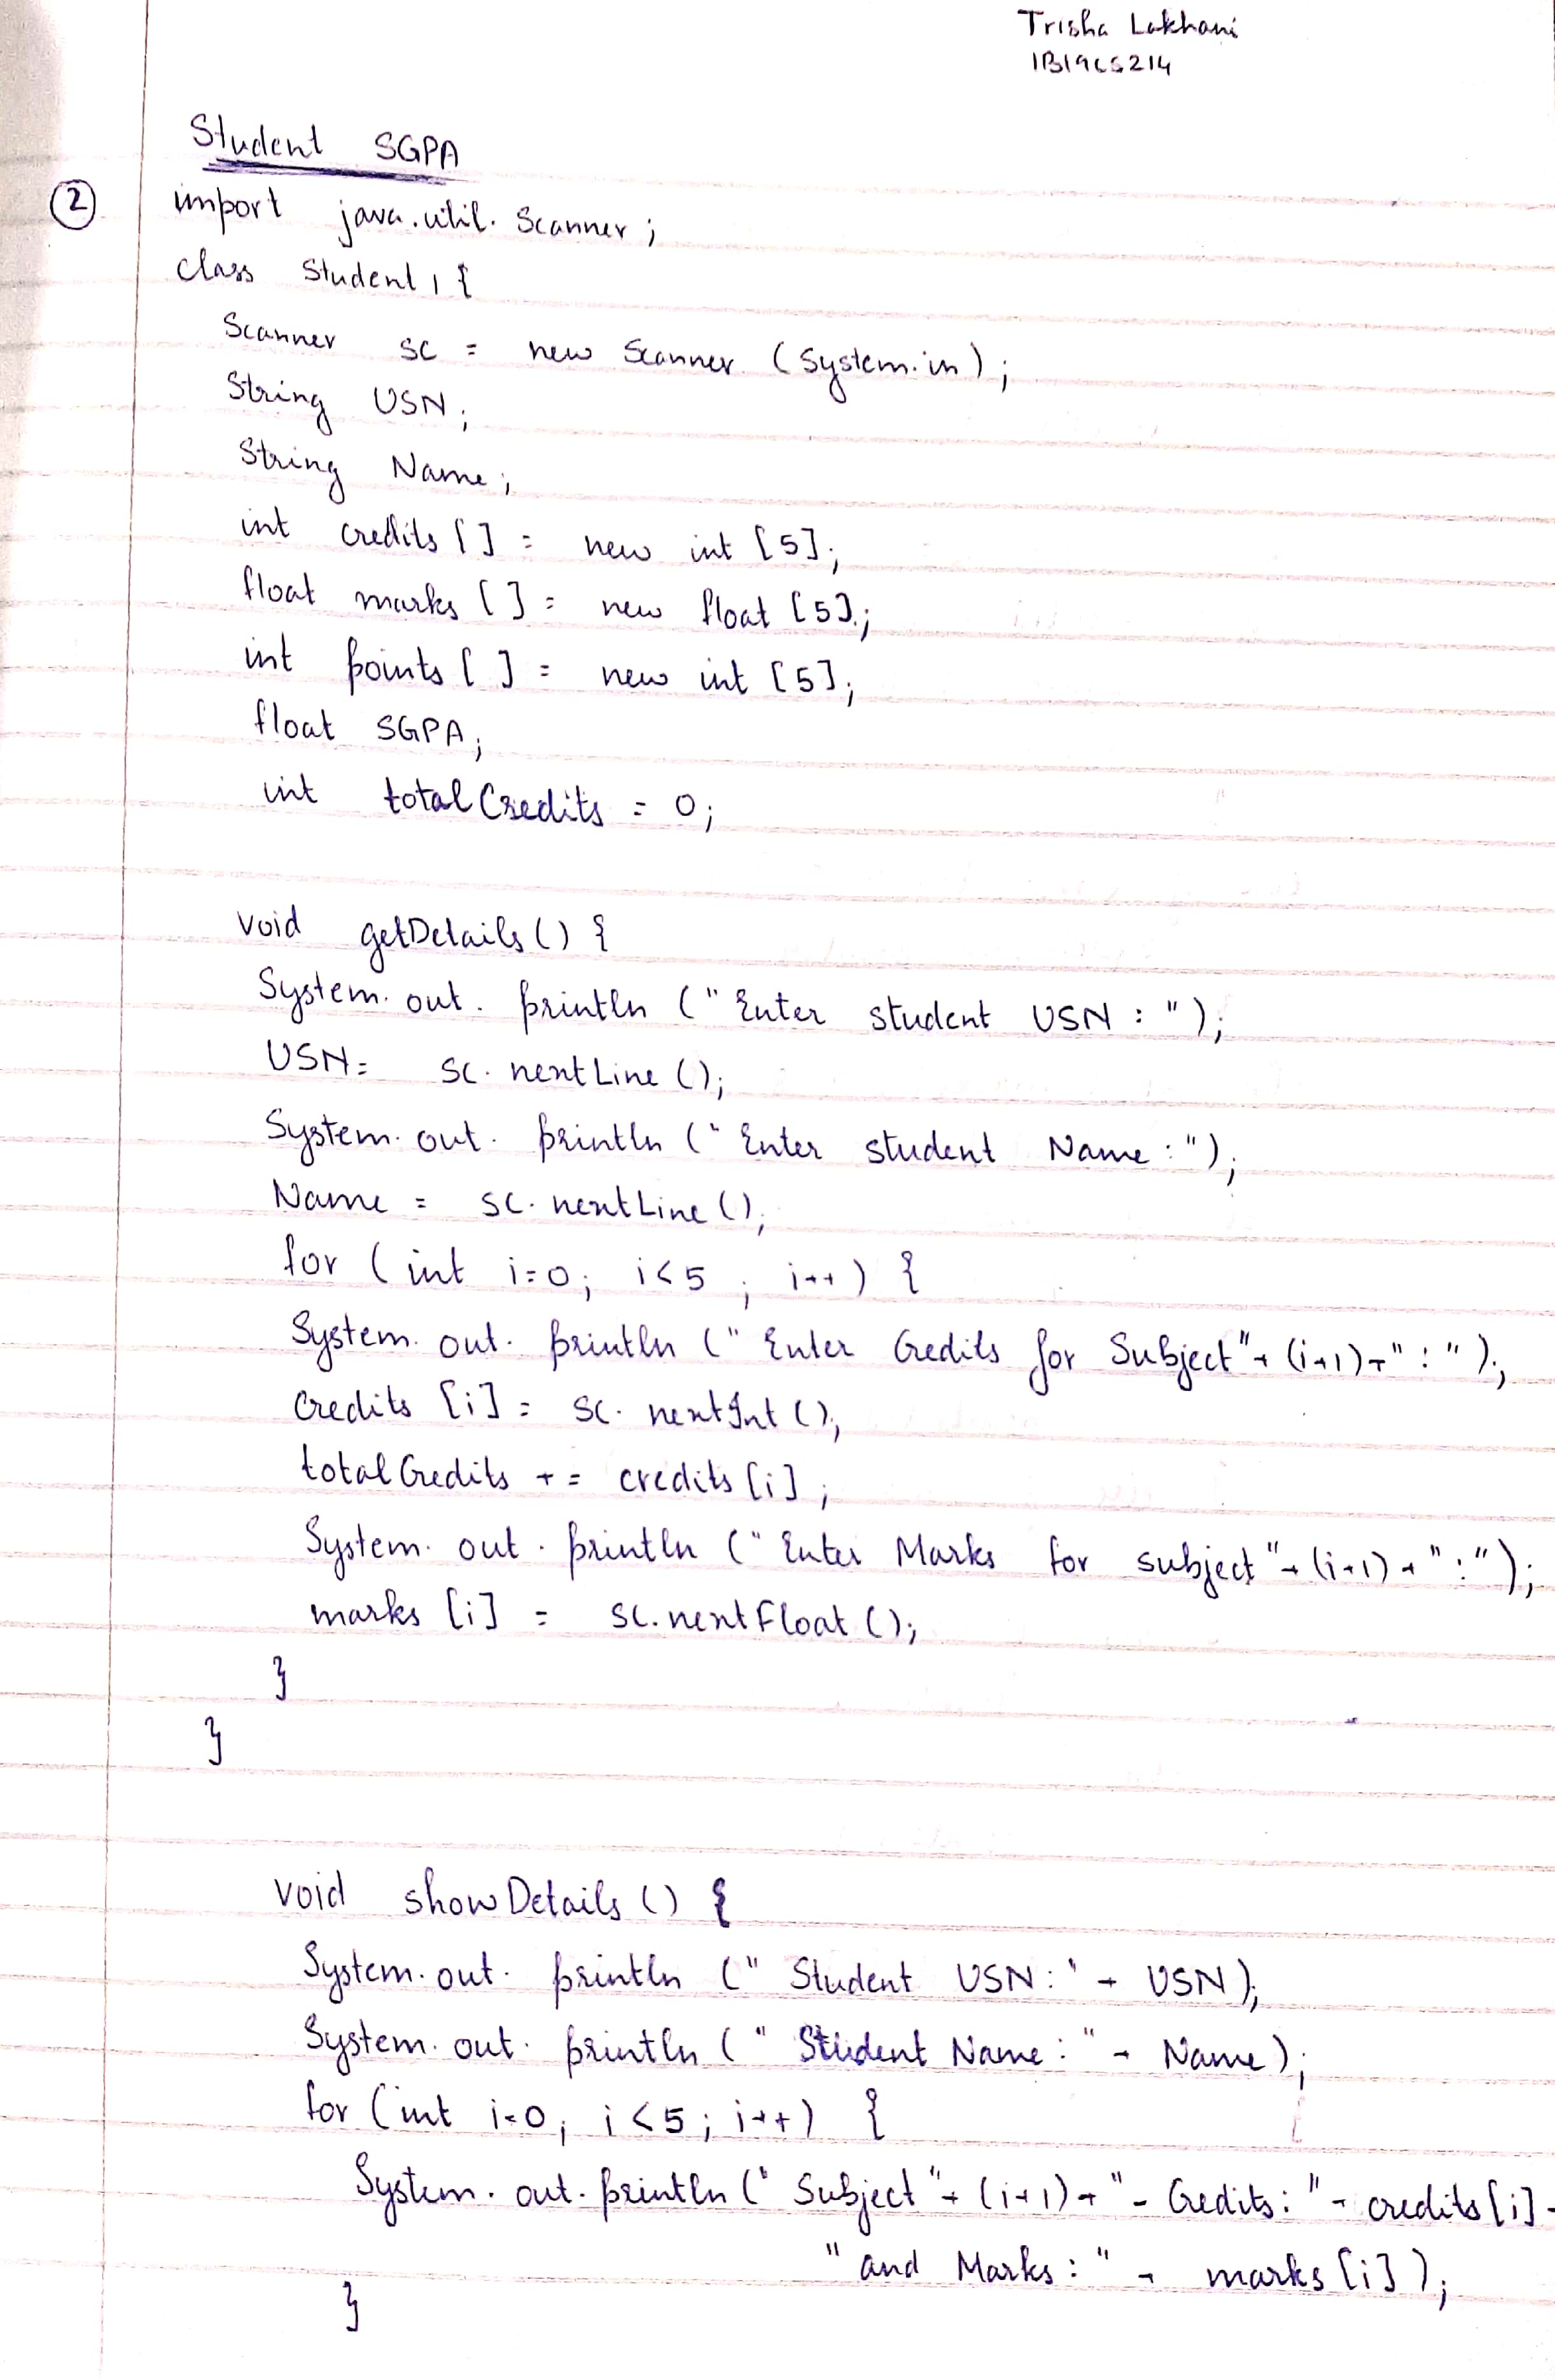 Trisha Lakhani
1B19CS214
Student SGPA
② import java.util.Scanner;
class Student1 {
Scanner sc = new Scanner (System.in);
String USN;
String Name;
int credits [] = new int [5];
float marks [] = new float [5];
int points [ ] = new int [5];
float SGPA;
int totalCredits = 0;
void getDetails () {
System.out.println (" Enter student USN : ");
USN = sc.nextLine ();
System.out.println (" Enter student Name : ");
Name = sc.nextLine ();
for (int i=0; i<5 ; i++) {
System.out.println (" Enter Credits for Subject"+ (i+1)+" : ");
credits [i] = sc.nextInt ();
totalCredits += credits [i];
System.out.println (" Enter Marks for subject"+(i+1)+" : ");
marks [i] = sc.nextFloat ();
}
}
void showDetails () {
System.out.println (" Student USN: " + USN);
System.out.println (" Student Name : " + Name);
for (int i=0; i<5; i++) {
System.out.println (" Subject "+ (i+1)+ "- Credits: "+ credits [i] +
" and Marks : " + marks [i] );
}